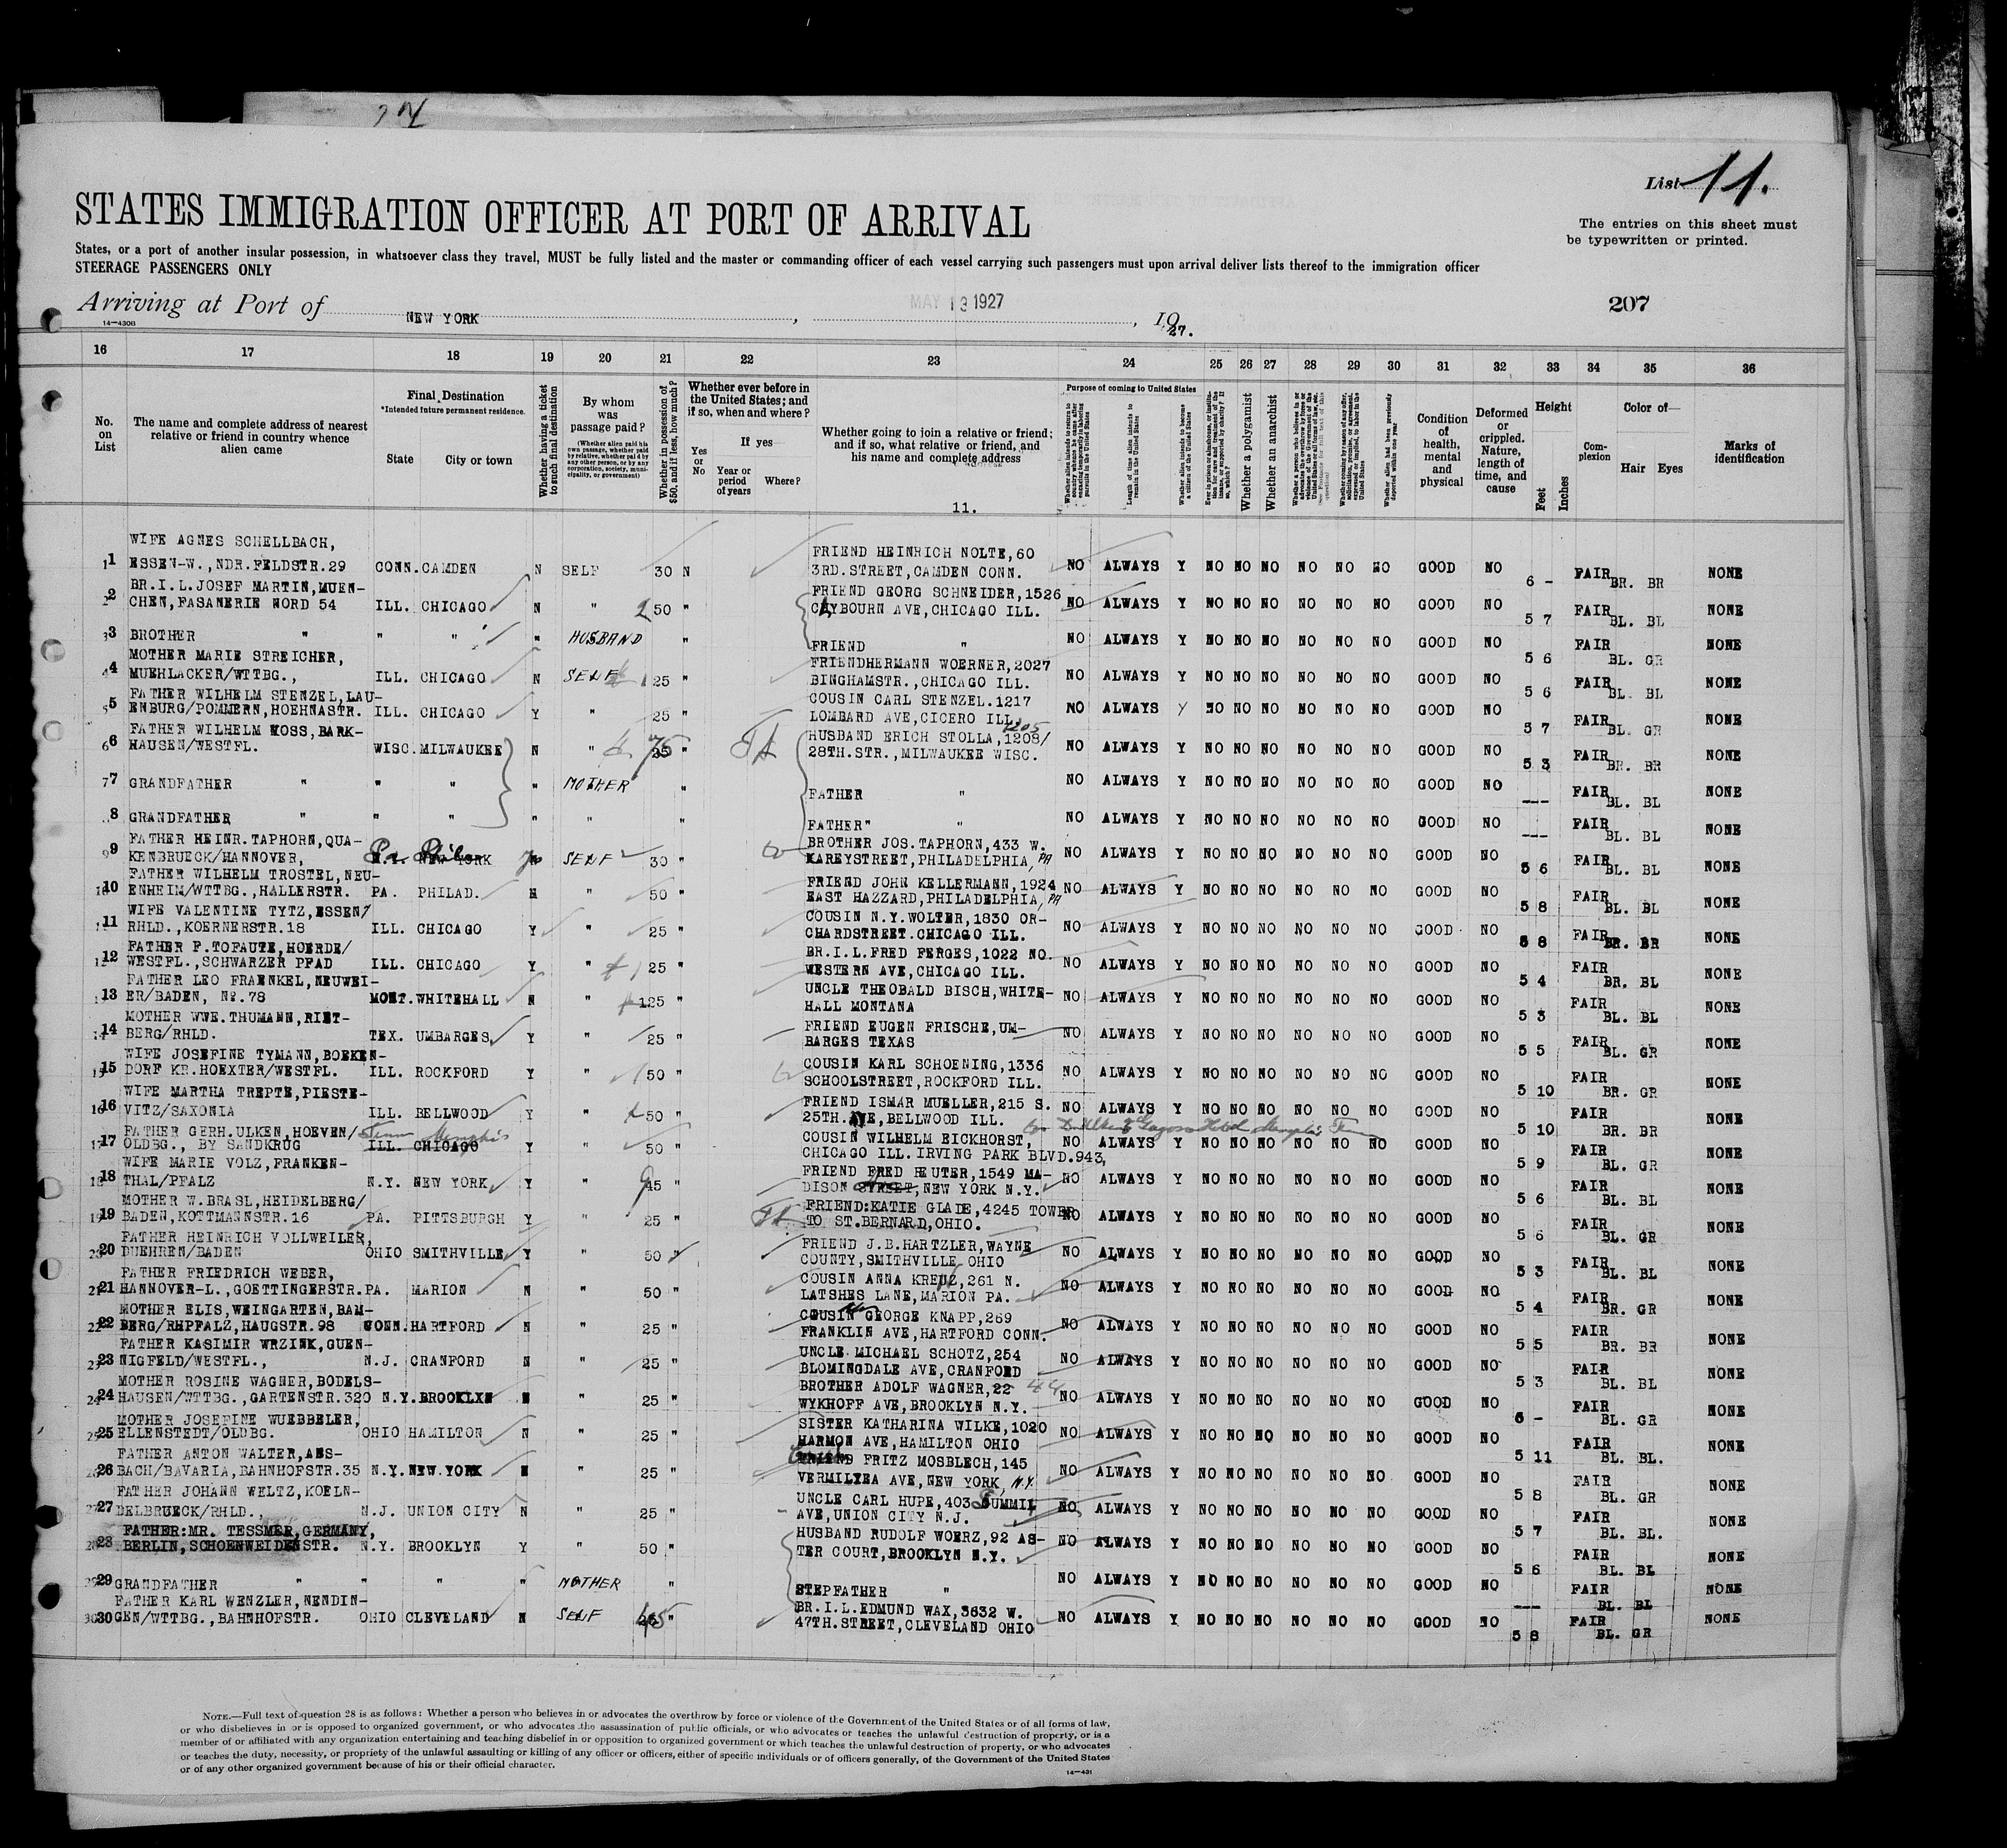 List 11.
STATES IMMIGRATION OFFICER AT PORT OF ARRIVAL
The entries on this sheet must
be typewritten or printed.
States, or a port of another insular possession, in whatsoever class they travel, MUST be fully listed and the master or commanding officer of each vessel carrying such passengers must upon arrival deliver lists thereof to the immigration officer
STEERAGE PASSENGERS ONLY
Arriving at Port of NEW YORK, MAY 13 1927, 1927.
207
14—430B
16 17 18 19 20 21 22 23 24 25 26 27 28 29 30 31 32 33 34 35 36
No. on List
The name and complete address of nearest relative or friend in country whence alien came
Final Destination
*Intended future permanent residence.
State City or town
Whether having a ticket to such final destination
By whom was passage paid?
(Whether alien paid his own passage, whether paid by relative, whether paid by any other person, or by any corporation, society, municipality, or government)
Whether in possession of $50, and if less, how much?
Whether ever before in the United States; and if so, when and where?
Yes or No
If yes—
Year or period of years Where?
Whether going to join a relative or friend; and if so, what relative or friend, and his name and complete address
11.
Purpose of coming to United States
Length of time alien intends to remain in the United States
Whether alien intends to become a citizen of the United States
Whether a polygamist
Whether an anarchist
Whether alien had been previously deported within one year
Condition of health, mental and physical
Deformed or crippled. Nature, length of time, and cause
Height
Feet Inches
Complexion
Color of—
Hair Eyes
Marks of identification
WIFE AGNES SCHELLBACH, FRIEND HEINRICH NOLTE, 60
1 ESSEN-W., NDR.FELDSTR.29 CONN. CAMDEN N SELF 30 N 3RD. STREET, CAMDEN CONN. NO ALWAYS Y NO NO NO NO NO NO GOOD NO 6 - FAIR BR. BR NONE
BR.I.L.JOSEF MARTIN, MUEN- FRIEND GEORG SCHNEIDER, 1526
2 CHEN, FASANERIE NORD 54 ILL. CHICAGO N " 50 " CLYBOURN AVE, CHICAGO ILL. NO ALWAYS Y NO NO NO NO NO NO GOOD NO 5 7 FAIR BL. BL NONE
3 BROTHER " " " " HUSBAND " FRIEND " NO ALWAYS Y NO NO NO NO NO NO GOOD NO 5 6 FAIR BL. GR NONE
MOTHER MARIE STREICHER, FRIENDHERMANN WOERNER, 2027
4 MUEHLACKER/WTTBG., ILL. CHICAGO N SELF 25 " BINGHAMSTR., CHICAGO ILL. NO ALWAYS Y NO NO NO NO NO NO GOOD NO 5 6 FAIR BL. BL NONE
FATHER WILHELM STENZEL, LAU- COUSIN CARL STENZEL. 1217
5 ENBURG/POMMERN, HOEHNASTR. ILL. CHICAGO Y " 25 " LOMBARD AVE, CICERO ILL. NO ALWAYS Y NO NO NO NO NO NO GOOD NO 5 7 FAIR BL. GR NONE
FATHER WILHELM VOSS, BARK- HUSBAND ERICH STOLLA, 1208/ 1205
6 HAUSEN/WESTFL. WISC. MILWAUKEE N " 75 25 " 28TH.STR., MILWAUKEE WISC. NO ALWAYS Y NO NO NO NO NO NO GOOD NO 5 3 FAIR BR. BR NONE
7 GRANDFATHER " " " " MOTHER " FATHER " NO ALWAYS Y NO NO NO NO NO NO GOOD NO --- FAIR BL. BL NONE
8 GRANDFATHER " " " " " " FATHER " " NO ALWAYS Y NO NO NO NO NO NO GOOD NO --- FAIR BL. BL NONE
FATHER HEINR. TAPHORN, QUA- BROTHER JOS. TAPHORN, 433 W.
9 KENBRUECK/HANNOVER, Pa. Phila NEW YORK SELF 30 " KAREYSTREET, PHILADELPHIA, PA NO ALWAYS Y NO NO NO NO NO NO GOOD NO 5 6 FAIR BL. BL NONE
FATHER WILHELM TROSTEL, NEU- FRIEND JOHN KELLERMANN, 1924
10 ENHEIM/WTTBG., HALLERSTR. PA. PHILAD. N " 50 " EAST HAZZARD, PHILADELPHIA, PA NO ALWAYS Y NO NO NO NO NO NO GOOD NO 5 8 FAIR BL. BL NONE
WIFE VALENTINE TYTZ, ESSEN/ COUSIN N.Y. WOLTER, 1830 OR-
11 RHLD., KOERNERSTR.18 ILL. CHICAGO Y " 25 " CHARDSTREET. CHICAGO ILL. NO ALWAYS Y NO NO NO NO NO NO GOOD NO 5 8 FAIR BR. BR NONE
FATHER F. TOFAUTE, HOERDE/ BR.I.L. FRED FERGES, 1022 NO.
12 WESTFL., SCHWARZER PFAD ILL. CHICAGO Y " 25 " WESTERN AVE, CHICAGO ILL. NO ALWAYS Y NO NO NO NO NO NO GOOD NO 5 4 FAIR BR. BL NONE
FATHER LEO FRAENKEL, NEUWEI- UNCLE THEOBALD BISCH, WHITE-
13 ER/BADEN, No.78 MONT. WHITEHALL N " 125 " HALL MONTANA NO ALWAYS Y NO NO NO NO NO NO GOOD NO 5 3 FAIR BL. BL NONE
MOTHER WWE. THUMANN, RIET- FRIEND EUGEN FRISCHE, UM-
14 BERG/RHLD. TEX. UMBARGES Y " 25 " BARGES TEXAS NO ALWAYS Y NO NO NO NO NO NO GOOD NO 5 5 FAIR BL. GR NONE
WIFE JOSEFINE TYMANN, BOEKEN- COUSIN KARL SCHOENING, 1336
15 DORF KR.HOEXTER/WESTFL. ILL. ROCKFORD Y " 50 " SCHOOLSTREET, ROCKFORD ILL. NO ALWAYS Y NO NO NO NO NO NO GOOD NO 5 10 FAIR BR. GR NONE
WIFE MARTHA TREPTE, PIESTE- FRIEND ISMAR MUELLER, 215 S.
16 VITZ/SAXONIA ILL. BELLWOOD Y " 50 " 25TH. AVE, BELLWOOD ILL. NO ALWAYS Y NO NO NO NO NO NO GOOD NO 5 10 FAIR BR. BR NONE
FATHER GERH. ULKEN, HOEVEN/ Tenn Memphis COUSIN WILHELM EICKHORST, Hotel Memphis Tenn
17 OLDBG., BY SANDKRUG ILL. CHICAGO Y " 50 " CHICAGO ILL. IRVING PARK BLVD.943, NO ALWAYS Y NO NO NO NO NO NO GOOD NO 5 9 FAIR BL. GR NONE
WIFE MARIE VOLZ, FRANKEN- FRIEND FRED HEUTER, 1549 MA-
18 THAL/PFALZ N.Y. NEW YORK Y " 45 " DISON STREET, NEW YORK N.Y. NO ALWAYS Y NO NO NO NO NO NO GOOD NO 5 6 FAIR BL. BL NONE
MOTHER W. BRASL, HEIDELBERG/ FRIEND: KATIE GLADE, 4245 TOWER
19 BADEN, KOTTMANNSTR.16 PA. PITTSBURGH Y " 25 " TO ST.BERNARD, OHIO. NO ALWAYS Y NO NO NO NO NO NO GOOD NO 5 6 FAIR BL. GR NONE
FATHER HEINRICH VOLLWEILER, FRIEND J.B. HARTZLER, WAYNE
20 DUEHREN/BADEN OHIO SMITHVILLE Y " 50 " COUNTY, SMITHVILLE OHIO NO ALWAYS Y NO NO NO NO NO NO GOOD NO 5 3 FAIR BL. BL NONE
FATHER FRIEDRICH WEBER, COUSIN ANNA KREUZ, 261 N.
21 HANNOVER-L., GOETTINGERSTR. PA. MARION N " 50 " LATSHES LANE, MARION PA. NO ALWAYS Y NO NO NO NO NO NO GOOD NO 5 4 FAIR BR. GR NONE
MOTHER ELIS, WEINGARTEN, BAM- COUSIN GEORGE KNAPP, 269
22 BERG/RHPFALZ, HAUGSTR.98 CONN. HARTFORD N " 25 " FRANKLIN AVE, HARTFORD CONN. NO ALWAYS Y NO NO NO NO NO NO GOOD NO 5 5 FAIR BR. BR NONE
FATHER KASIMIR WRZINK, GUEN- UNCLE MICHAEL SCHOTZ, 254
23 NIGFELD/WESTFL., N.J. CRANFORD N " 25 " BLOMINGDALE AVE, CRANFORD NO ALWAYS Y NO NO NO NO NO NO GOOD NO 5 3 FAIR BL. BL NONE
MOTHER ROSINE WAGNER, BODELS- BROTHER ADOLF WAGNER, 22 44
24 HAUSEN/WTTBG., GARTENSTR.320 N.Y. BROOKLYN N " 25 " WYKHOFF AVE, BROOKLYN N.Y. NO ALWAYS Y NO NO NO NO NO NO GOOD NO 6 - FAIR BL. GR NONE
MOTHER JOSEFINE WUEBBELER, SISTER KATHARINA WILKE, 1020
25 ELLENSTEDT/OLDBG. OHIO HAMILTON N " 25 " HARMON AVE, HAMILTON OHIO NO ALWAYS Y NO NO NO NO NO NO GOOD NO 5 11 FAIR BL. BL. NONE
FATHER ANTON WALTER, AES- FRIEND FRITZ MOSBLECH, 145
26 BACH/BAVARIA, BAHNHOFSTR.35 N.Y. NEW YORK N " 25 " VERMILYEA AVE, NEW YORK, N.Y. NO ALWAYS Y NO NO NO NO NO NO GOOD NO 5 8 FAIR BL. GR NONE
FATHER JOHANN WELTZ, KOELN- UNCLE CARL HUPE, 403 SUMMIL
27 DELBRUECK/RHLD., N.J. UNION CITY N " 25 " AVE, UNION CITY N.J. NO ALWAYS Y NO NO NO NO NO NO GOOD NO 5 7 FAIR BL. BL. NONE
FATHER: MR. TESSMER, GERMANY, HUSBAND RUDOLF WOERZ, 92 AS-
28 BERLIN, SCHOENWEIDENSTR. N.Y. BROOKLYN Y " 50 " TER COURT, BROOKLYN N.Y. NO ALWAYS Y NO NO NO NO NO NO GOOD NO 5 6 FAIR BL. BL NONE
29 GRANDFATHER " " " " MOTHER " STEPFATHER " NO ALWAYS Y NO NO NO NO NO NO GOOD NO --- FAIR BL. BL NONE
FATHER KARL WENZLER, NENDIN- BR.I.L. EDMUND WAX, 3632 W.
30 GEN/WTTBG., BAHNHOFSTR. OHIO CLEVELAND N SELF " 47TH. STREET, CLEVELAND OHIO NO ALWAYS Y NO NO NO NO NO NO GOOD NO 5 8 FAIR BL. GR NONE
NOTE.—Full text of question 28 is as follows: Whether a person who believes in or advocates the overthrow by force or violence of the Government of the United States or of all forms of law,
or who disbelieves in or is opposed to organized government, or who advocates the assassination of public officials, or who advocates or teaches the unlawful destruction of property, or is a
member of or affiliated with any organization entertaining and teaching disbelief in or opposition to organized government or which teaches the unlawful destruction of property, or who advocates
or teaches the duty, necessity, or propriety of the unlawful assaulting or killing of any officer or officers, either of specific individuals or of officers generally, of the Government of the United States
or of any other organized government because of his or their official character.
14—431